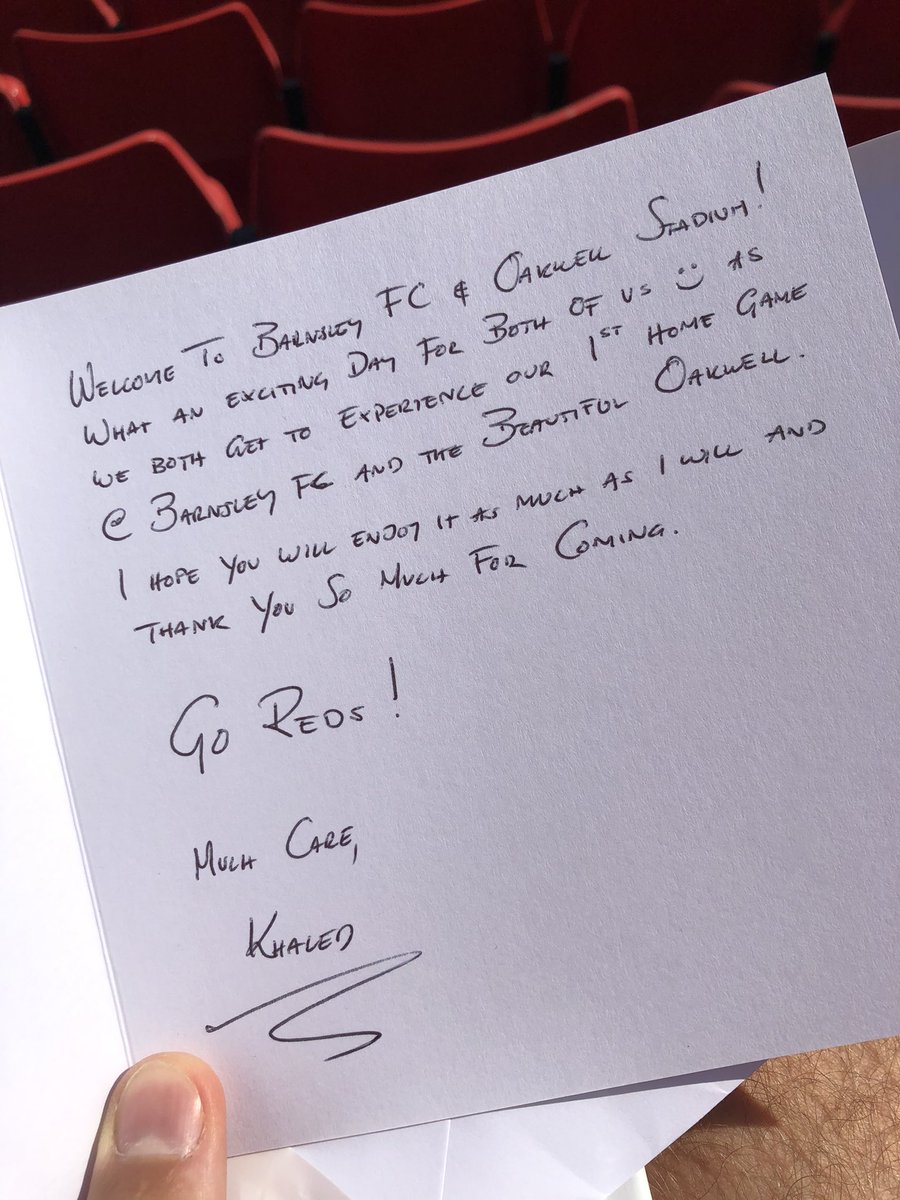 WELCOME TO BARNSLEY FC & OAKWELL STADIUM!
WHAT AN EXCITING DAY FOR BOTH OF US :) AS
WE BOTH GET TO EXPERIENCE OUR 1ST HOME GAME
@ BARNSLEY FC AND THE BEAUTIFUL OAKWELL.
I HOPE YOU WILL ENJOY IT AS MUCH AS I WILL AND
THANK YOU SO MUCH FOR COMING.
GO REDS!
MUCH CARE,
KHALED